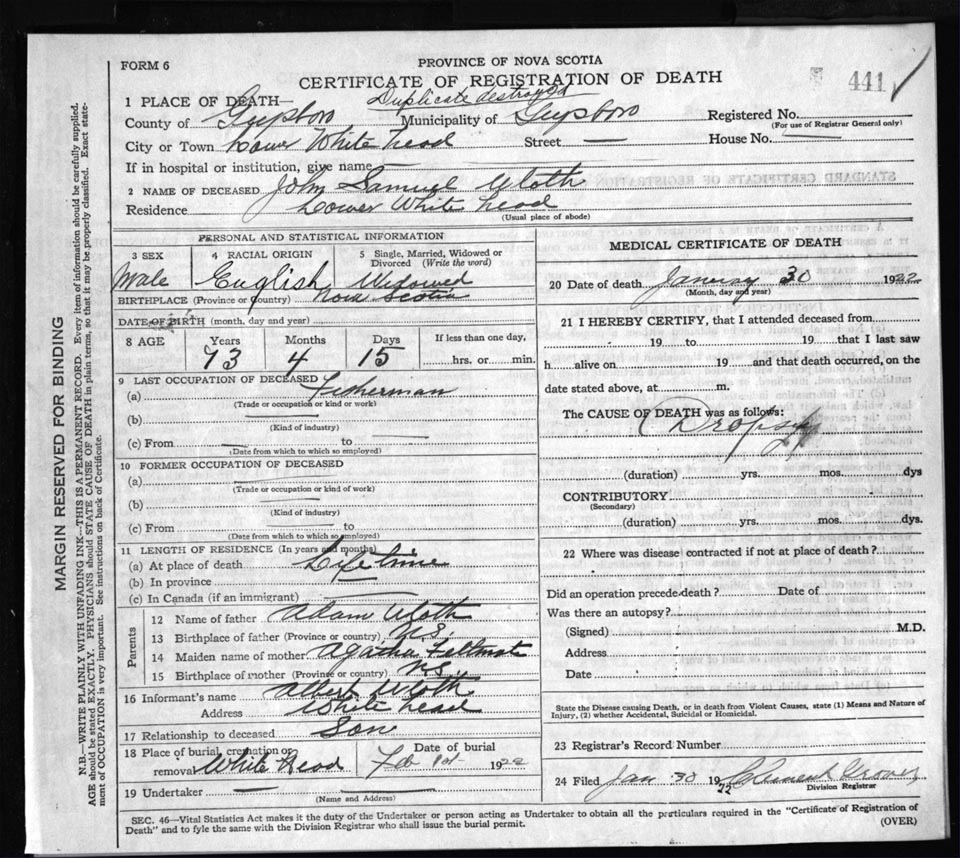 FORM 6
PROVINCE OF NOVA SCOTIA
CERTIFICATE OF REGISTRATION OF DEATH
441
Duplicate destroyed
1 PLACE OF DEATH—
County of Guysboro Municipality of Guysboro Registered No.
(For use of Registrar General only)
City or Town Lower White head Street — House No.
If in hospital or institution, give name
2 NAME OF DECEASED John Samuel Uloth
Residence Lower White head
(Usual place of abode)
PERSONAL AND STATISTICAL INFORMATION
3 SEX 4 RACIAL ORIGIN 5 Single, Married, Widowed or Divorced (Write the word)
Male English Widowed
BIRTHPLACE (Province or Country) Nova Scotia
DATE OF BIRTH (month, day and year)
8 AGE Years Months Days If less than one day,
73 4 15 hrs. or min.
9 LAST OCCUPATION OF DECEASED
(a) Fisherman
(Trade or occupation or kind or work)
(b) —
(Kind of industry)
(c) From — to —
(Date from which to which so employed)
10 FORMER OCCUPATION OF DECEASED
(a)
(Trade or occupation or kind of work)
(b)
(Kind of industry)
(c) From to
(Date from which to which so employed)
11 LENGTH OF RESIDENCE (In years and months)
(a) At place of death Lifetime
(b) In province
(c) In Canada (if an immigrant)
Parents
12 Name of father Adam Uloth
13 Birthplace of father (Province or country) N.S.
14 Maiden name of mother Agatha
15 Birthplace of mother (Province or country) N.S.
16 Informant's name Albert Uloth
Address White head
17 Relationship to deceased Son
18 Place of burial, cremation or removal White Head Feb 1st Date of burial 1922
19 Undertaker —
(Name and Address)
MEDICAL CERTIFICATE OF DEATH
20 Date of death January 30 1922
(Month, day and year)
21 I HEREBY CERTIFY, that I attended deceased from
19 to 19 that I last saw
h alive on 19 and that death occurred, on the
date stated above, at m.
The CAUSE OF DEATH was as follows:
Dropsy
(duration) yrs. mos. dys
CONTRIBUTORY
(Secondary)
(duration) yrs. mos. dys.
22 Where was disease contracted if not at place of death?
Did an operation precede death? Date of
Was there an autopsy?
(Signed) M.D.
Address
Date
State the Disease causing Death, or in death from Violent Causes, state (1) Means and Nature of
Injury, (2) whether Accidental, Suicidal or Homicidal.
23 Registrar's Record Number
24 Filed Jan 30 1922 Clement Grover
Division Registrar
SEC. 46—Vital Statistics Act makes it the duty of the Undertaker or person acting as Undertaker to obtain all the particulars required in the "Certificate of Registration of
Death" and to fyle the same with the Division Registrar who shall issue the burial permit. (OVER)
MARGIN RESERVED FOR BINDING
N.B.—WRITE PLAINLY WITH UNFADING INK—THIS IS A PERMANENT RECORD. Every item of information should be carefully supplied.
AGE should be stated EXACTLY. PHYSICIANS should STATE CAUSE OF DEATH in plain terms, so that it may be properly classified. Exact statement
of OCCUPATION is very important. See instructions on back of Certificate.